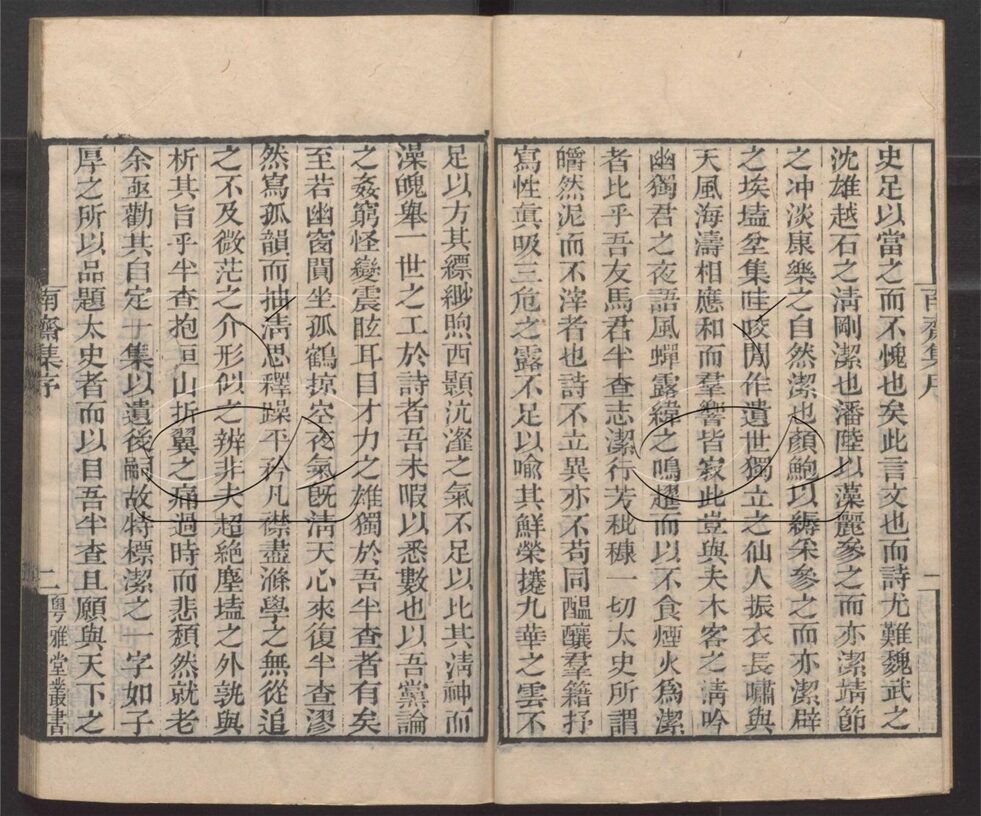 南齋集序
一
史足以當之而不愧也矣此言文也而詩尤難魏武之
沈雄越石之淸剛潔也潘陸以藻麗參之而亦潔靖節
之冲淡康樂之自然潔也顏鮑以縟采參之而亦潔辟
之埃壒坌集哇咬閒作遺世獨立之仙人振衣長嘯與
天風海濤相應和而羣響皆寂此豈與夫木客之淸吟
幽獨君之夜語風蟬露緯之鳴趯而以不食煙火爲潔
者比乎吾友馬君半查志潔行芳秕穅一切太史所謂
皭然泥而不滓者也詩不立異亦不苟同醞釀羣籍抒
寫性眞吸三危之露不足以喻其鮮榮九華之雲不
足以方其縹緲煦西顥沆瀣之氣不足以比其淸神而
澡魄舉一世之工於詩者吾未暇以悉數也以吾黨論
之姦窮怪變震眩耳目才力之雄獨於吾半查者有矣
至若幽窗閴坐孤鶴掠空夜氣旣淸天心來復半查漻
然寫孤韻而抽淸思釋躁平矜凡襟盡滌學之無從追
之不及微茫之介形似之辨非夫超絶塵壒之外孰與
析其旨乎半查抱山折翼之痛過時而悲頹然就老
余亟勸其自定集以遺後嗣故特標潔之一字如子
厚之所以品題太史者而以目吾半查且願與天下之
南齋集序
二
粤雅堂叢書